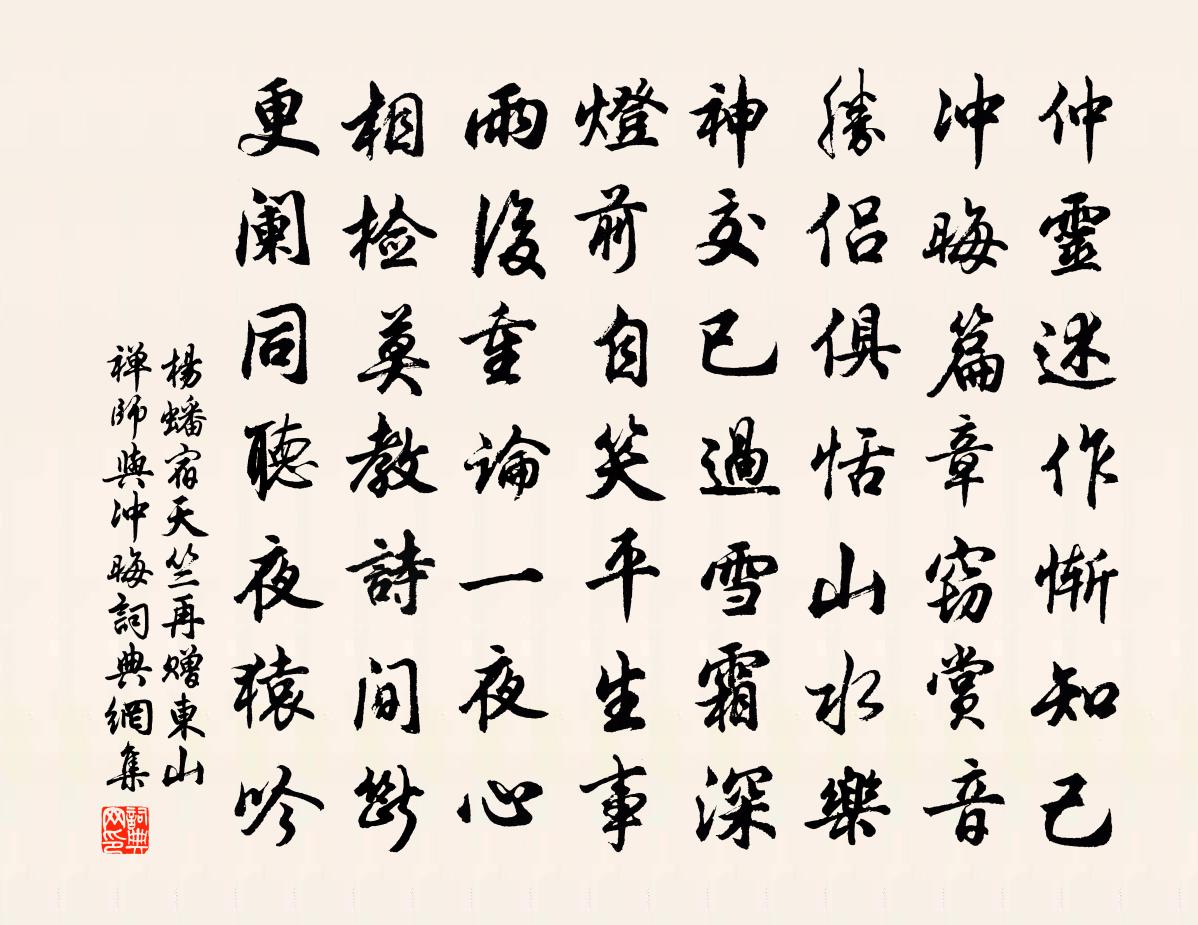 仲靈述作慚知己
冲晦篇章窃赏音
勝侣俱恬山水樂
神交已過雪霜深
燈前自笑平生事
雨後重論一夜心
相檢莫教詩間斷
更阑同聽夜猿吟
楊蟠宿天竺再赠東山
禅師與冲晦詞典網集
詞典
网印